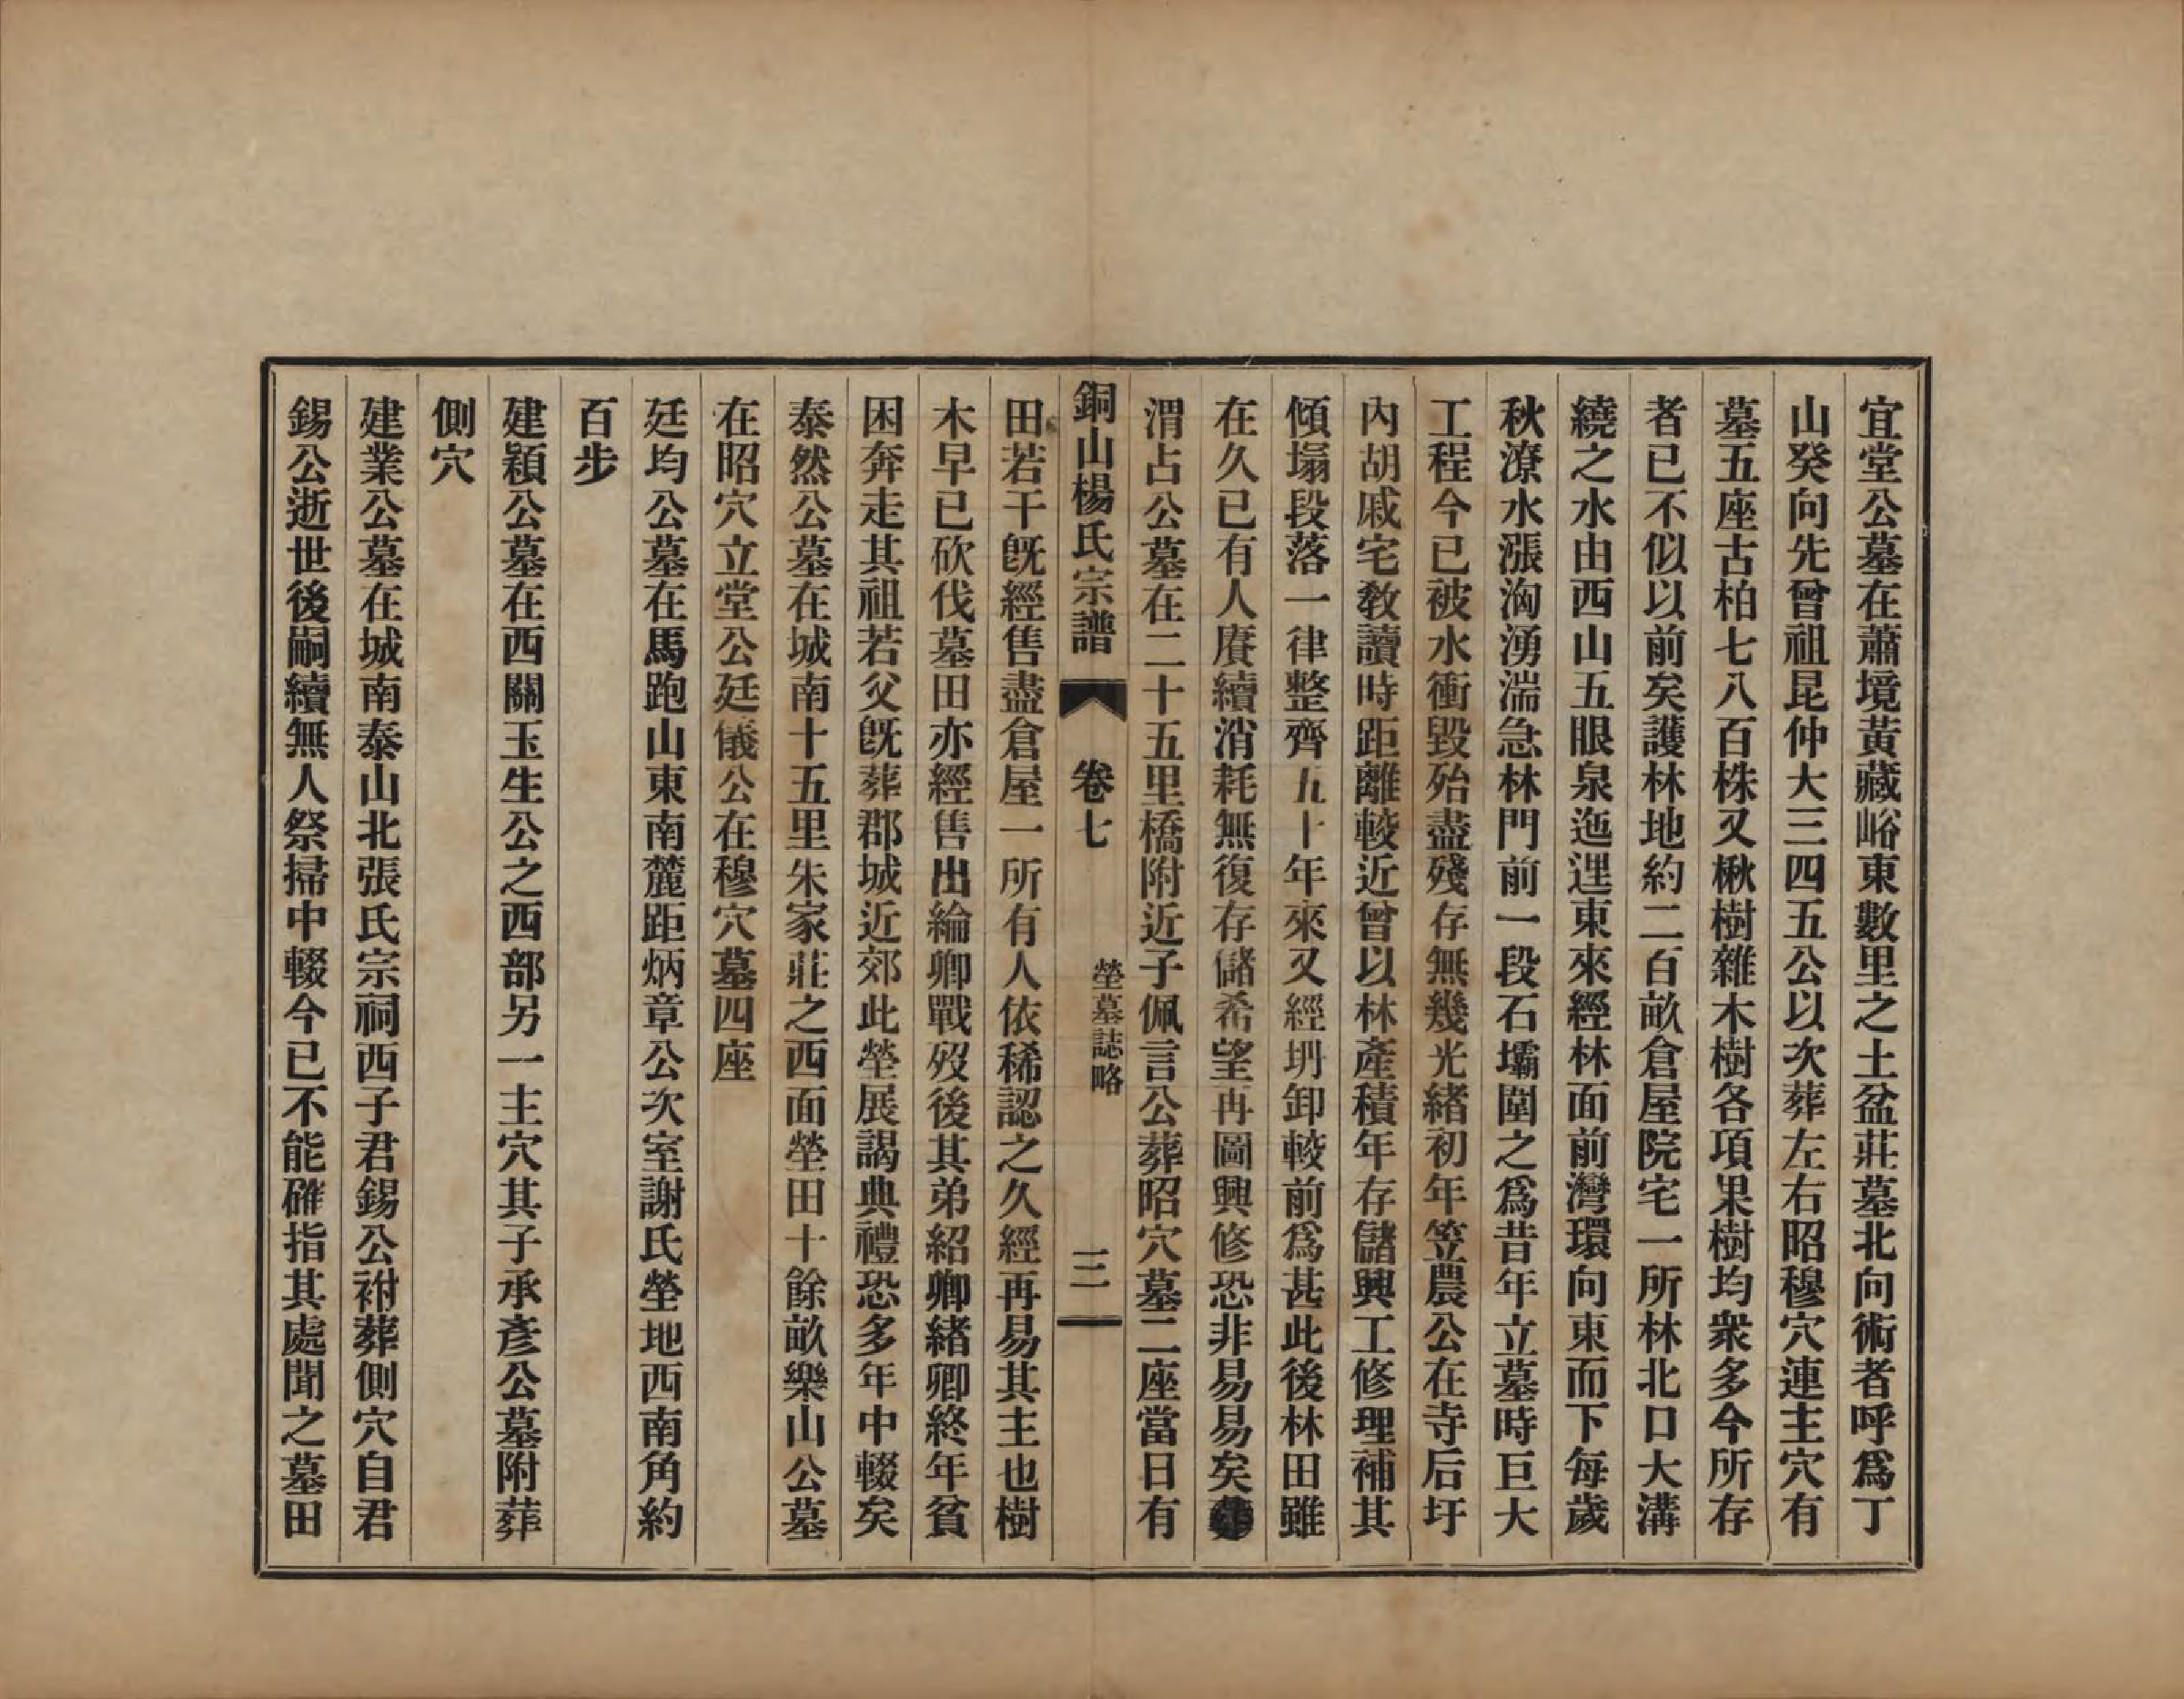 宜堂公墓在蕭境黃藏峪東數里之土盆莊墓北向術者呼爲丁
山癸向先曾祖昆仲大三四五公以次葬左右昭穆穴連主穴有
墓五座古柏七八百株又楸樹雜木樹各項果樹均衆多今所存
者已不似以前矣護林地約二百畝倉屋院宅一所林北口大溝
繞之水由西山五眼泉迤逞東來經林面前灣環向東而下每歲
秋潦水漲洶湧湍急林門前一段石壩圍之爲昔年立墓時巨大
工程今已被水衝毀殆盡殘存無幾光緒初年笠農公在寺后圩
內胡戚宅敎讀時距離較近曾以林產積年存儲興工修理補其
傾塌段落一律整齊五十年來又經坍卸較前爲甚此後林田雖
在久已有人賡續消耗無復存儲希望再圖興修恐非易易矣
渭占公墓在二十五里橋附近子佩言公葬昭穴墓二座當日有
銅山楊氏宗譜 卷七 塋墓誌略 三
田若干旣經售盡倉屋一所有人依稀認之久經再易其主也樹
木早已砍伐墓田亦經售出綸卿戰歿後其弟紹卿緒卿終年貧
困奔走其祖若父旣葬郡城近郊此塋展謁典禮恐多年中輟矣
泰然公墓在城南十五里朱家莊之西面塋田十餘畝樂山公墓
在昭穴立堂公廷儀公在穆穴墓四座
廷均公墓在馬跑山東南麓距炳章公次室謝氏塋地西南角約
百步
建穎公墓在西關玉生公之西部另一主穴其子承彥公墓附葬
側穴
建業公墓在城南泰山北張氏宗祠西子君錫公祔葬側穴自君
錫公逝世後嗣續無人祭掃中輟今已不能確指其處聞之墓田